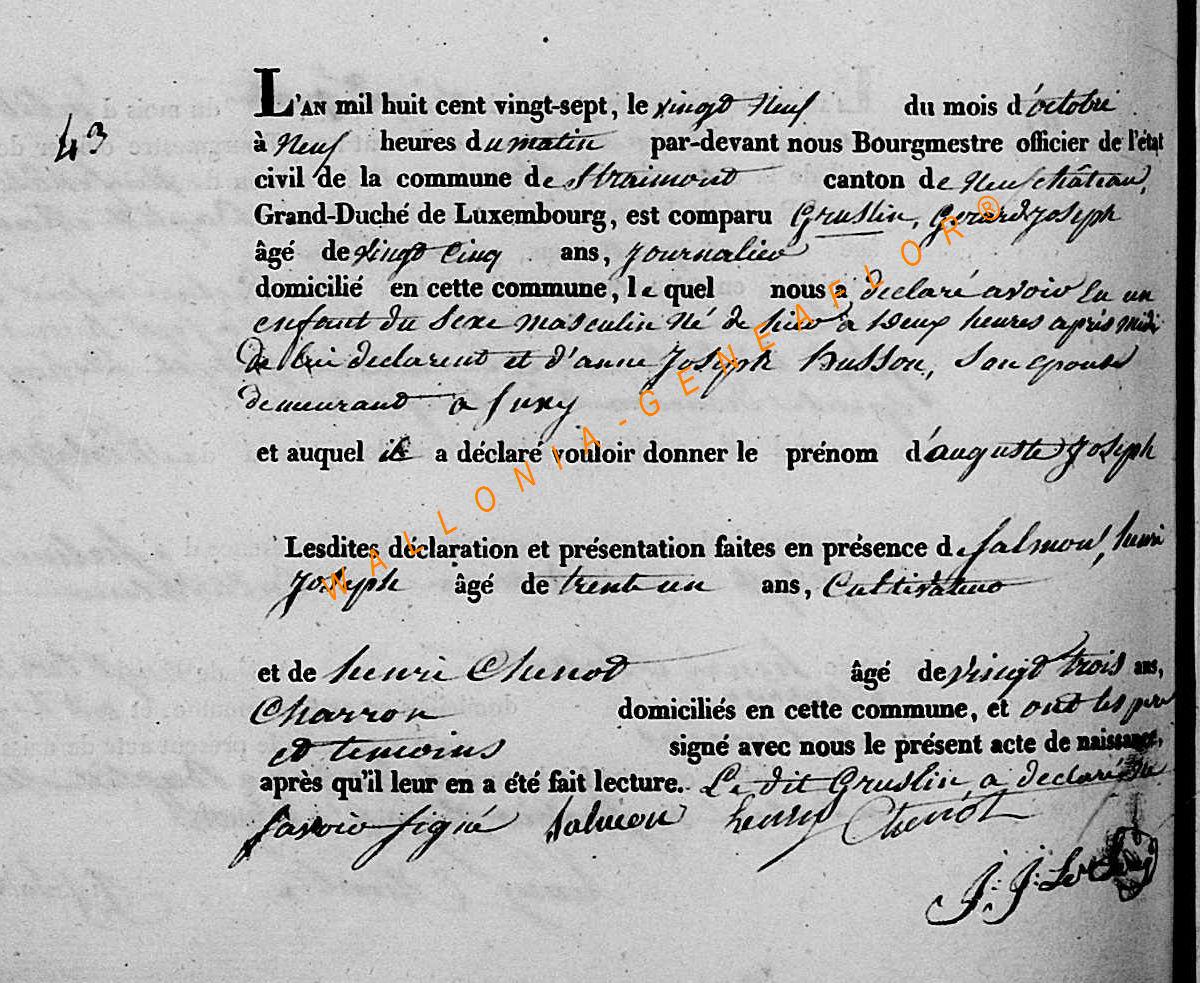 43
L'AN mil huit cent vingt-sept, le vingt Neuf du mois d'octobre
à Neuf heures du matin par-devant nous Bourgmestre officier de l'état
civil de la commune de Straimont canton de Neufchâteau,
Grand-Duché de Luxembourg, est comparu Gruslin, Gerard Joseph
âgé de vingt Cinq ans, Journalier
domicilié en cette commune, le quel nous a declaré avoir Eu un
enfant du Sexe masculin Né de hier à Deux heures après midi
de lui declarent et d'anne Joseph Husson, Son epouse
demeurant a Suxy
et auquel il a déclaré vouloir donner le prénom d'auguste Joseph
Lesdites déclaration et présentation faites en présence de Salmon, henri
Joseph âgé de trent un ans, Cultivateur
et de henri Chenot âgé de vingt trois ans,
Charron domiciliés en cette commune, et ont les pere
et temoins signé avec nous le présent acte de naissance,
après qu'il leur en a été fait lecture. Le dit Gruslin, a declaré
savoir signé Salmon henry Chenot
J: J:
WALLONIA-GENEAFLOR®